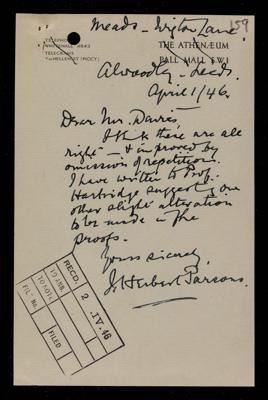 Meads - Wigton Lane
159
TELEPHONE
WHITEHALL 4843
TELEGRAMS
THE ATHENÆUM
PALL MALL S.W.1
Alwoodley - Leeds.
April 1/46.
Dear Mr. Davies,
I think these are all
right - & improved by
omission of repetition.
I have written to Prof.
Hartridge suggesting one
other slight alteration
to be made in the
proofs.
Yours sincerely,
J. Herbert Parsons.
RECD.
2 .IV.46
FILED